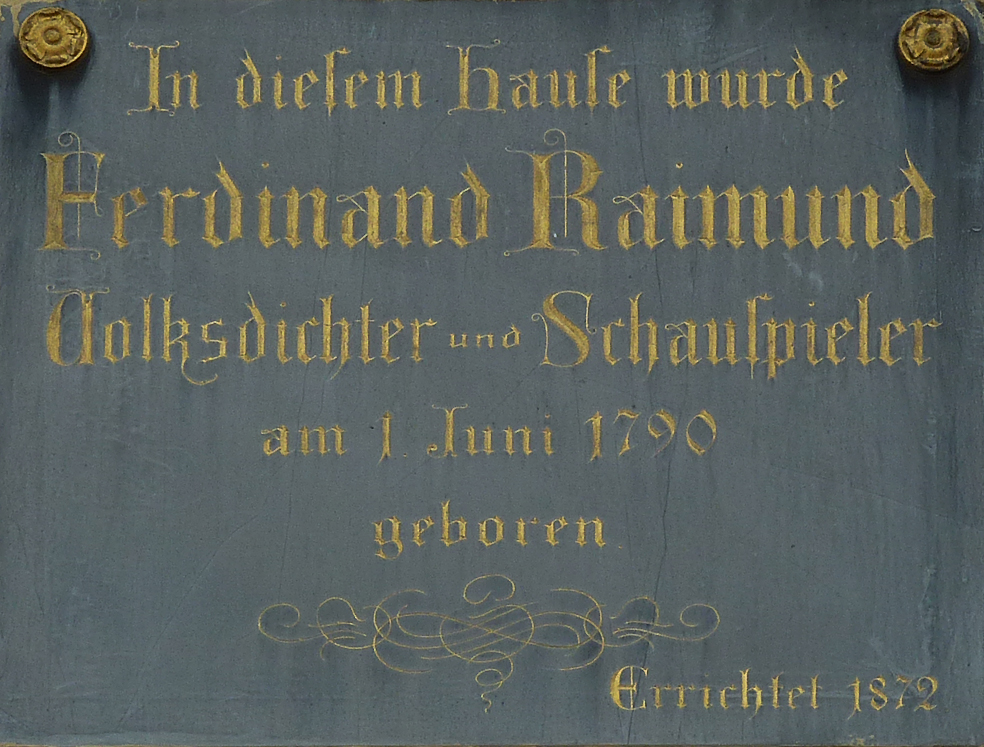 In dieſem Hauſe wurde
Ferdinand Raimund
Volksdichter und Schauſpieler
am 1 Juni 1790
geboren
Errichtet 1872